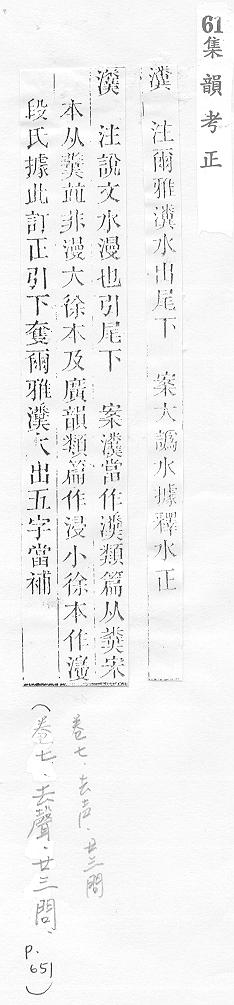 61集韻考正
瀵 注爾雅瀵水出尾下 案大譌水據釋水正
瀵 注說文水漫也引尾下 案瀵當作瀵類篇从糞宋
本从糞並非漫大徐本及廣韻類篇作浸小徐本作濅
段氏據此訂正引下奪爾雅瀵大出五字當補
卷七.去声.廿三問
(卷七.去聲.廿三問.
p.
651)